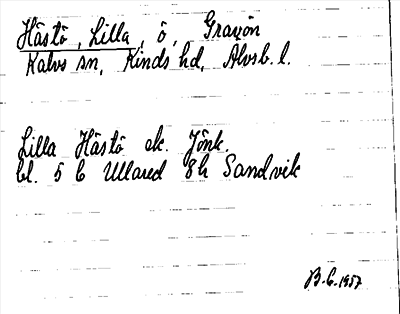 Hästö, Lilla, ö, Gravön
Kalvs sn, Kinds hd, Älvsb. l.
Lilla Hästö ek. Jönk.
bl. 5 6 Ullared 8h Sandvik
B.G. 1957